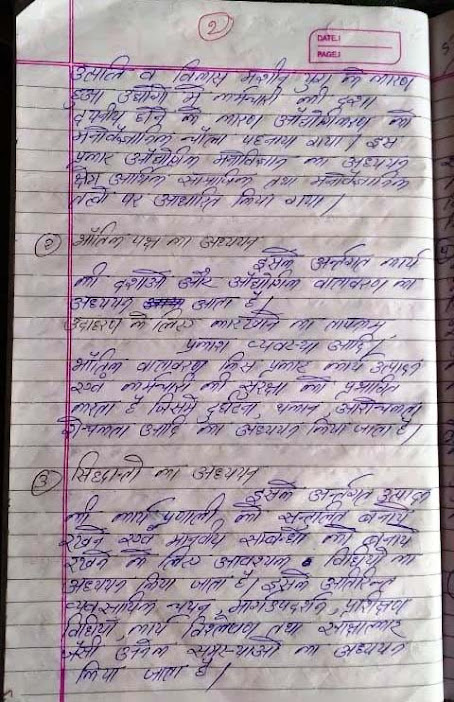 2
DATE.:
PAGE.:
उत्पत्ति व विकास मशीन युग के कारण
हुआ उद्योगों में कर्मचारी की दशा
दयनीय होने के कारण औद्योगिकरण को
मनोवैज्ञानिक चोला पहनाया गया। इस
प्रकार औद्योगिक मनोविज्ञान का अध्ययन
क्षेत्र आर्थिक सामाजिक तथा मनोवैज्ञानिक
तत्वों पर आधारित किया गया।
② भौतिक पक्ष का अध्ययन
इसके अर्न्तगत कार्य
की दशाओं और औद्योगिक वातावरण का
अध्ययन आता है।
उदाहरण के लिए कारखाने का तापक्रम
प्रकाश व्यवस्था आदि।
भौतिक वातावरण किस प्रकार कार्य उत्पादन
एवं कर्मचारी की सुरक्षा को प्रभावित
करता है जिसमें दुर्घटना, थकान, अरोचकता,
रोचकता आदि का अध्ययन किया जाता है।
③ सिद्धान्तों का अध्ययन
इसके अर्न्तगत उत्पादन
की कार्य प्रणाली को सन्तुलित बनाये
रखने एवं मानवीय सम्बन्धों को बनाये
रखने के लिए आवश्यक विधियों का
अध्ययन किया जाता है। इसके अतिरिक्त
व्यवसायिक चयन, मार्गउपदर्शन, प्रशिक्षण
विधियाँ, कार्य विश्लेषण तथा साक्षात्कार
जैसी अनेक समस्याओं का अध्ययन
किया जाता है।